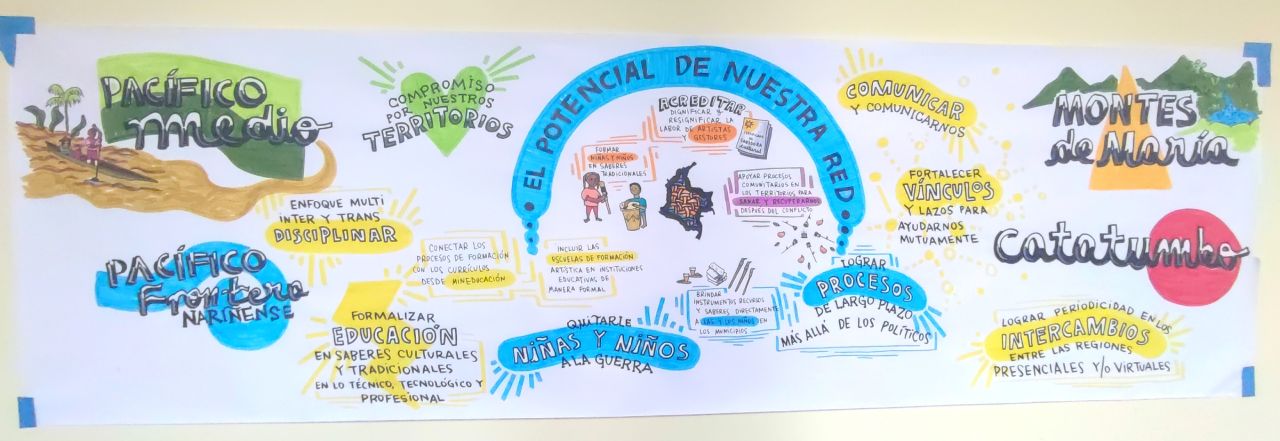 PACÍFICO
medio
COMPROMISO
POR NUESTROS
TERRITORIOS
EL POTENCIAL DE NUESTRA RED
ACREDITAR
DIGNIFICAR Y
RESIGNIFICAR LA
LABOR DE ARTISTAS
Y GESTORES
FORMAR
NIÑAS Y NIÑOS
EN SABERES
TRADICIONALES
APOYAR PROCESOS
COMUNITARIOS EN
LOS TERRITORIOS PARA
SANAR Y RECUPERARNOS
DESPUÉS DEL CONFLICTO
COMUNICAR
Y COMUNICARNOS
MONTES
de María
ENFOQUE MULTI
INTER Y TRANS
DISCIPLINAR
FORTALECER
VÍNCULOS
Y LAZOS PARA
AYUDARNOS
MUTUAMENTE
PACÍFICO
Frontera
NARIÑENSE
CONECTAR LOS
PROCESOS DE FORMACIÓN
CON LOS CURRÍCULOS
DESDE MINEDUCACIÓN
INCLUIR LAS
ESCUELAS DE FORMACIÓN
ARTÍSTICA EN INSTITUCIONES
EDUCATIVAS DE
MANERA FORMAL
Catatumbo
FORMALIZAR
EDUCACIÓN
EN SABERES CULTURALES
Y TRADICIONALES
EN LO TÉCNICO, TECNOLÓGICO Y
PROFESIONAL
QUITARLE
NIÑAS Y NIÑOS
A LA GUERRA
BRINDAR
INSTRUMENTOS RECURSOS
Y SABERES DIRECTAMENTE
A LAS Y LOS NIÑOS EN
LOS MUNICIPIOS
LOGRAR
PROCESOS
DE LARGO PLAZO
MÁS ALLÁ DE LOS POLÍTICOS
LOGRAR PERIODICIDAD EN LOS
INTERCAMBIOS
ENTRE LAS REGIONES
PRESENCIALES Y/O VIRTUALES